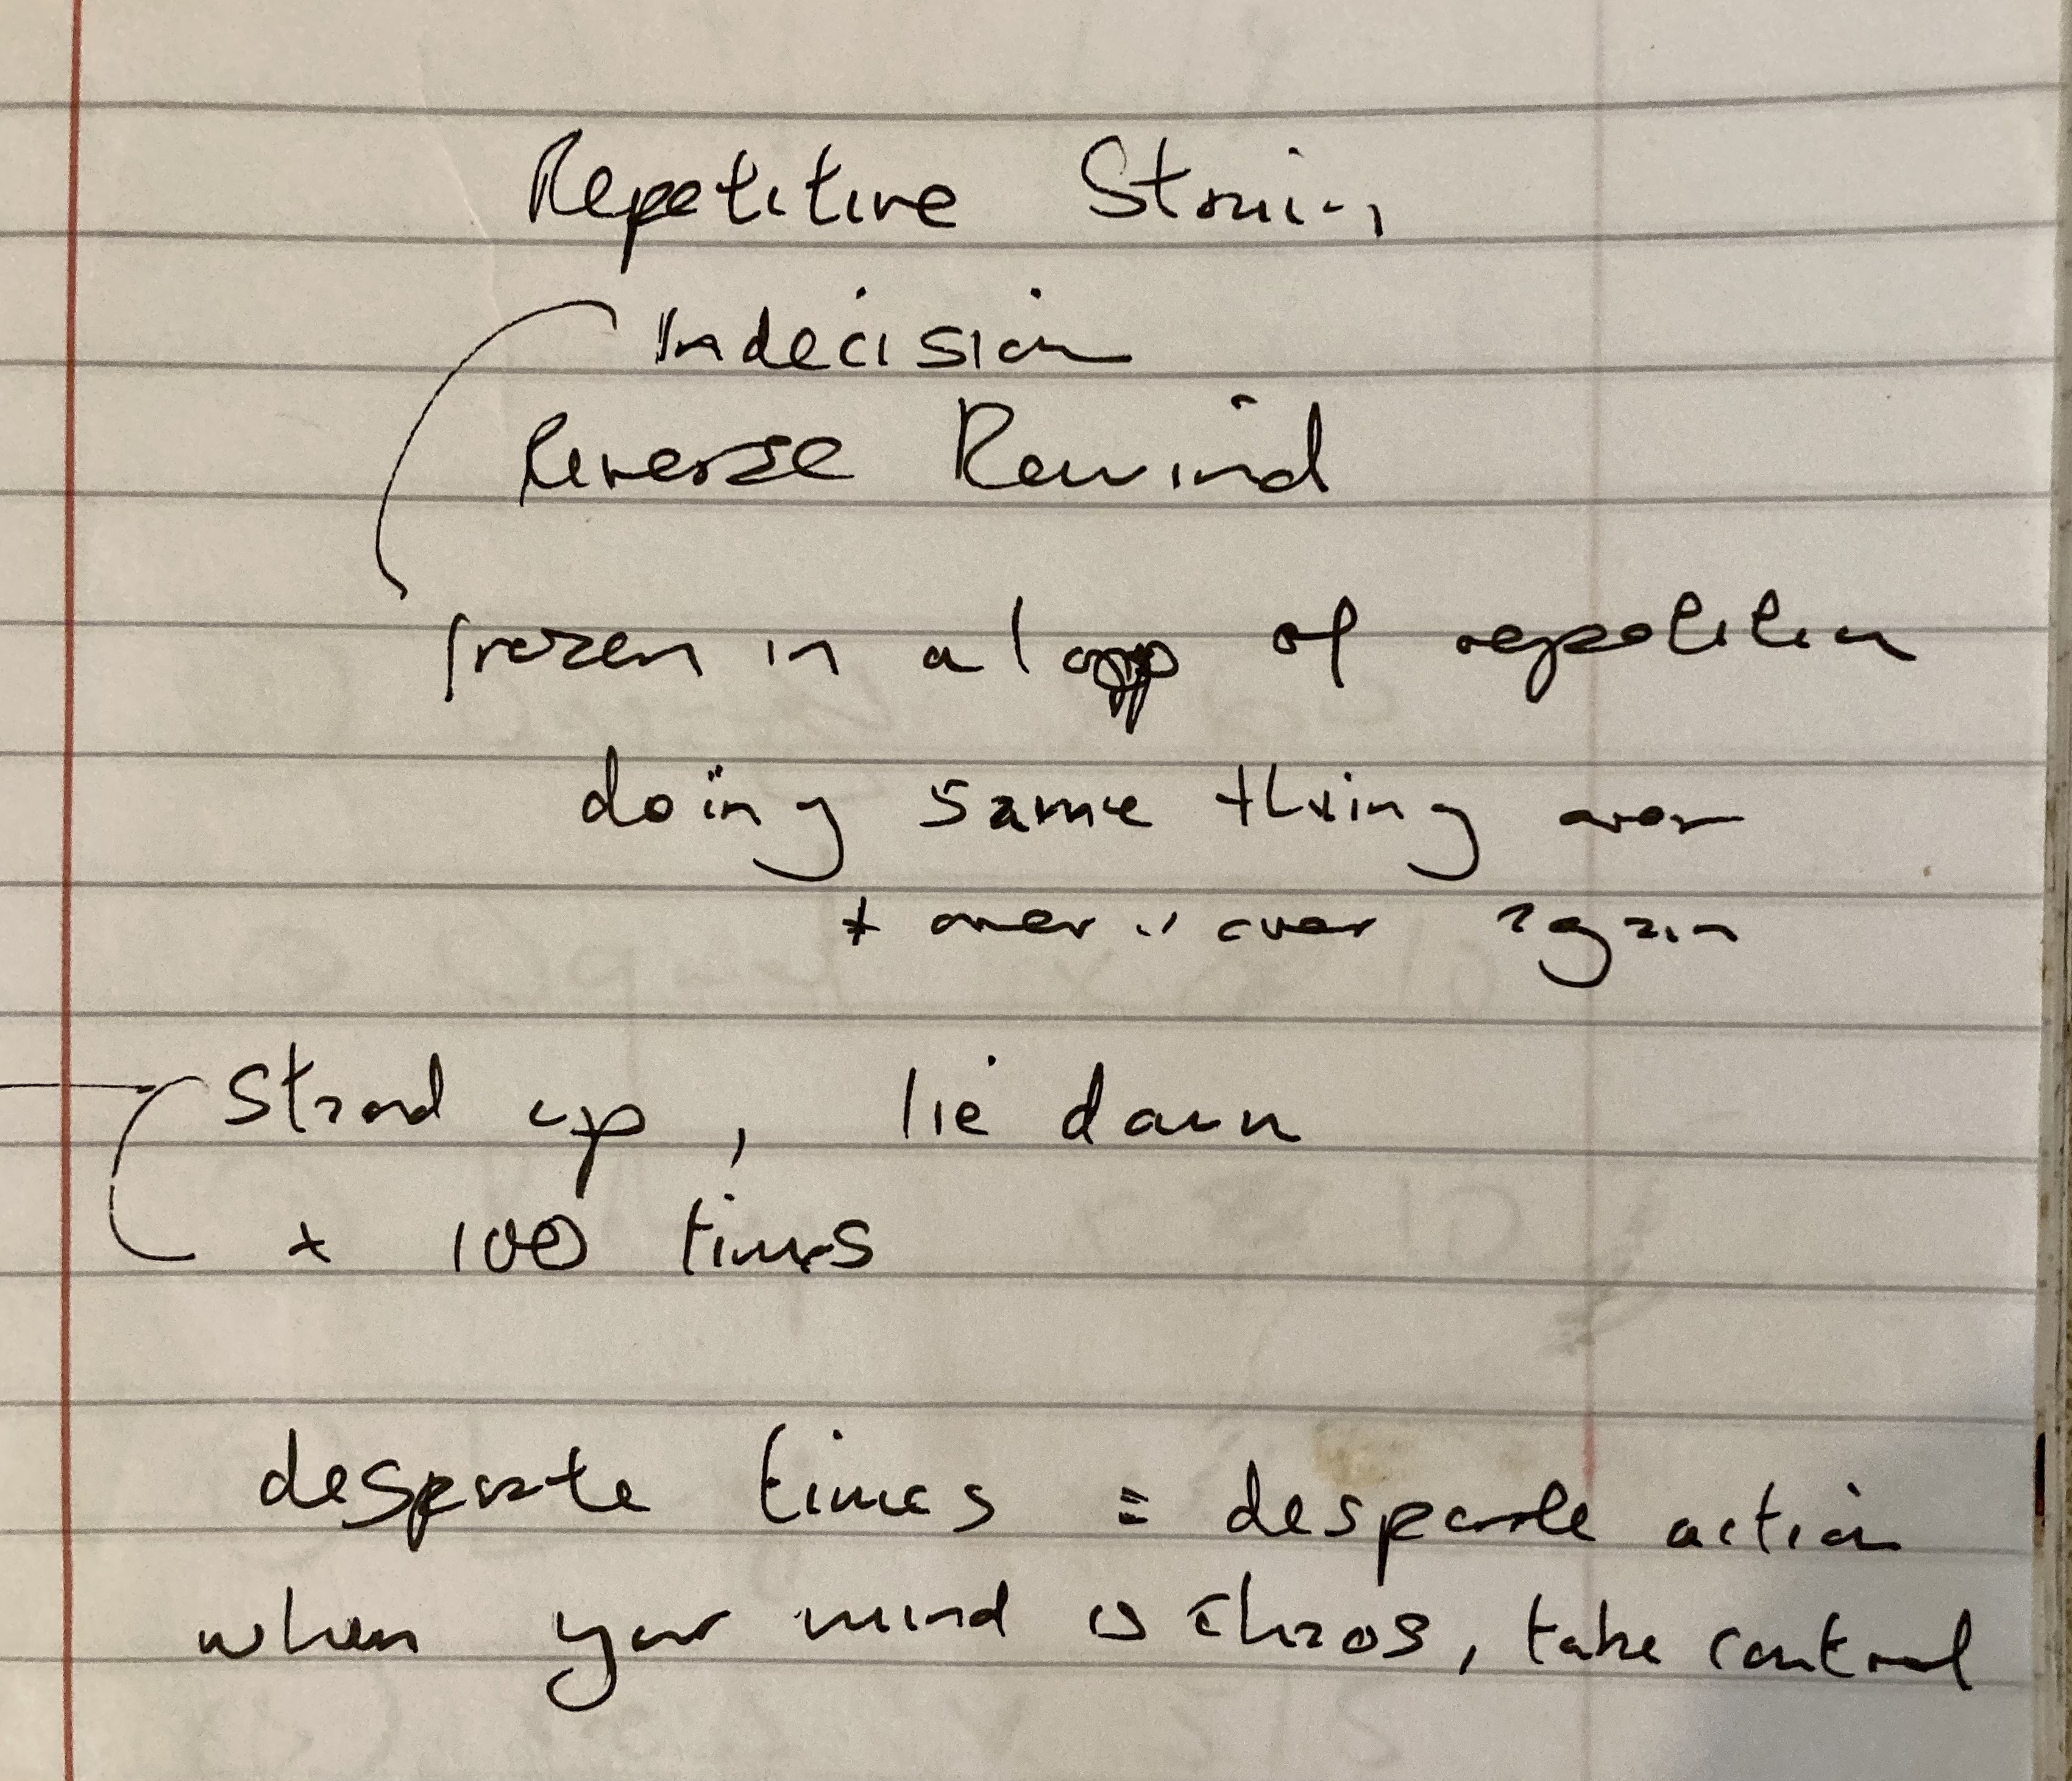 Repetitive Strain
Indecision
Reverse Rewind
frozen in a loop of repetition
doing same thing over
+ over " over again
Stand up, lie down
x 100 times
desperate times = desperate action
when your mind is chaos, take control